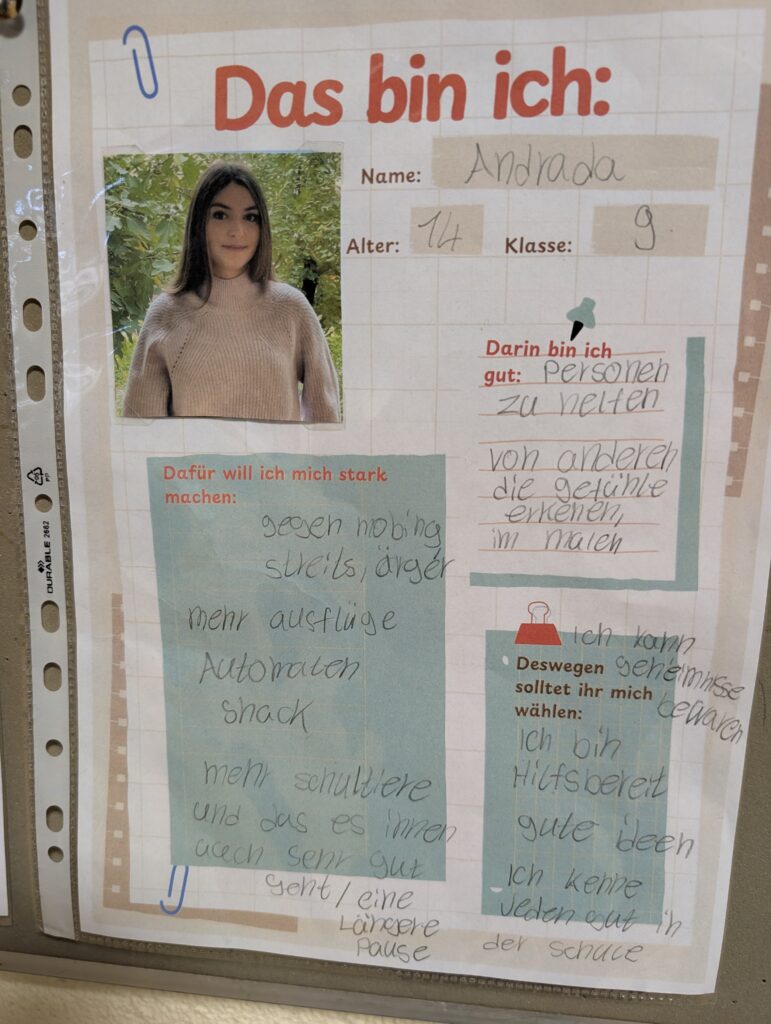 Das bin ich:
Name: Andrada
Alter: 14 Klasse: 9
Darin bin ich
gut: Personen
zu helfen
von anderen
die gefühle
erkenen,
im malen
Dafür will ich mich stark
machen:
gegen mobing
streits, ärger
mehr ausflüge
Automaten
snack
mehr schultiere
und das es ihnen
auch sehr gut
geht / eine
Längere
Pause
ich kann
Deswegen geheimnisse
solltet ihr mich bewaren
wählen:
Ich bin
Hilfsbereit
gute ideen
Ich kenne
Jeden gut in
der schule
DURABLE 2662